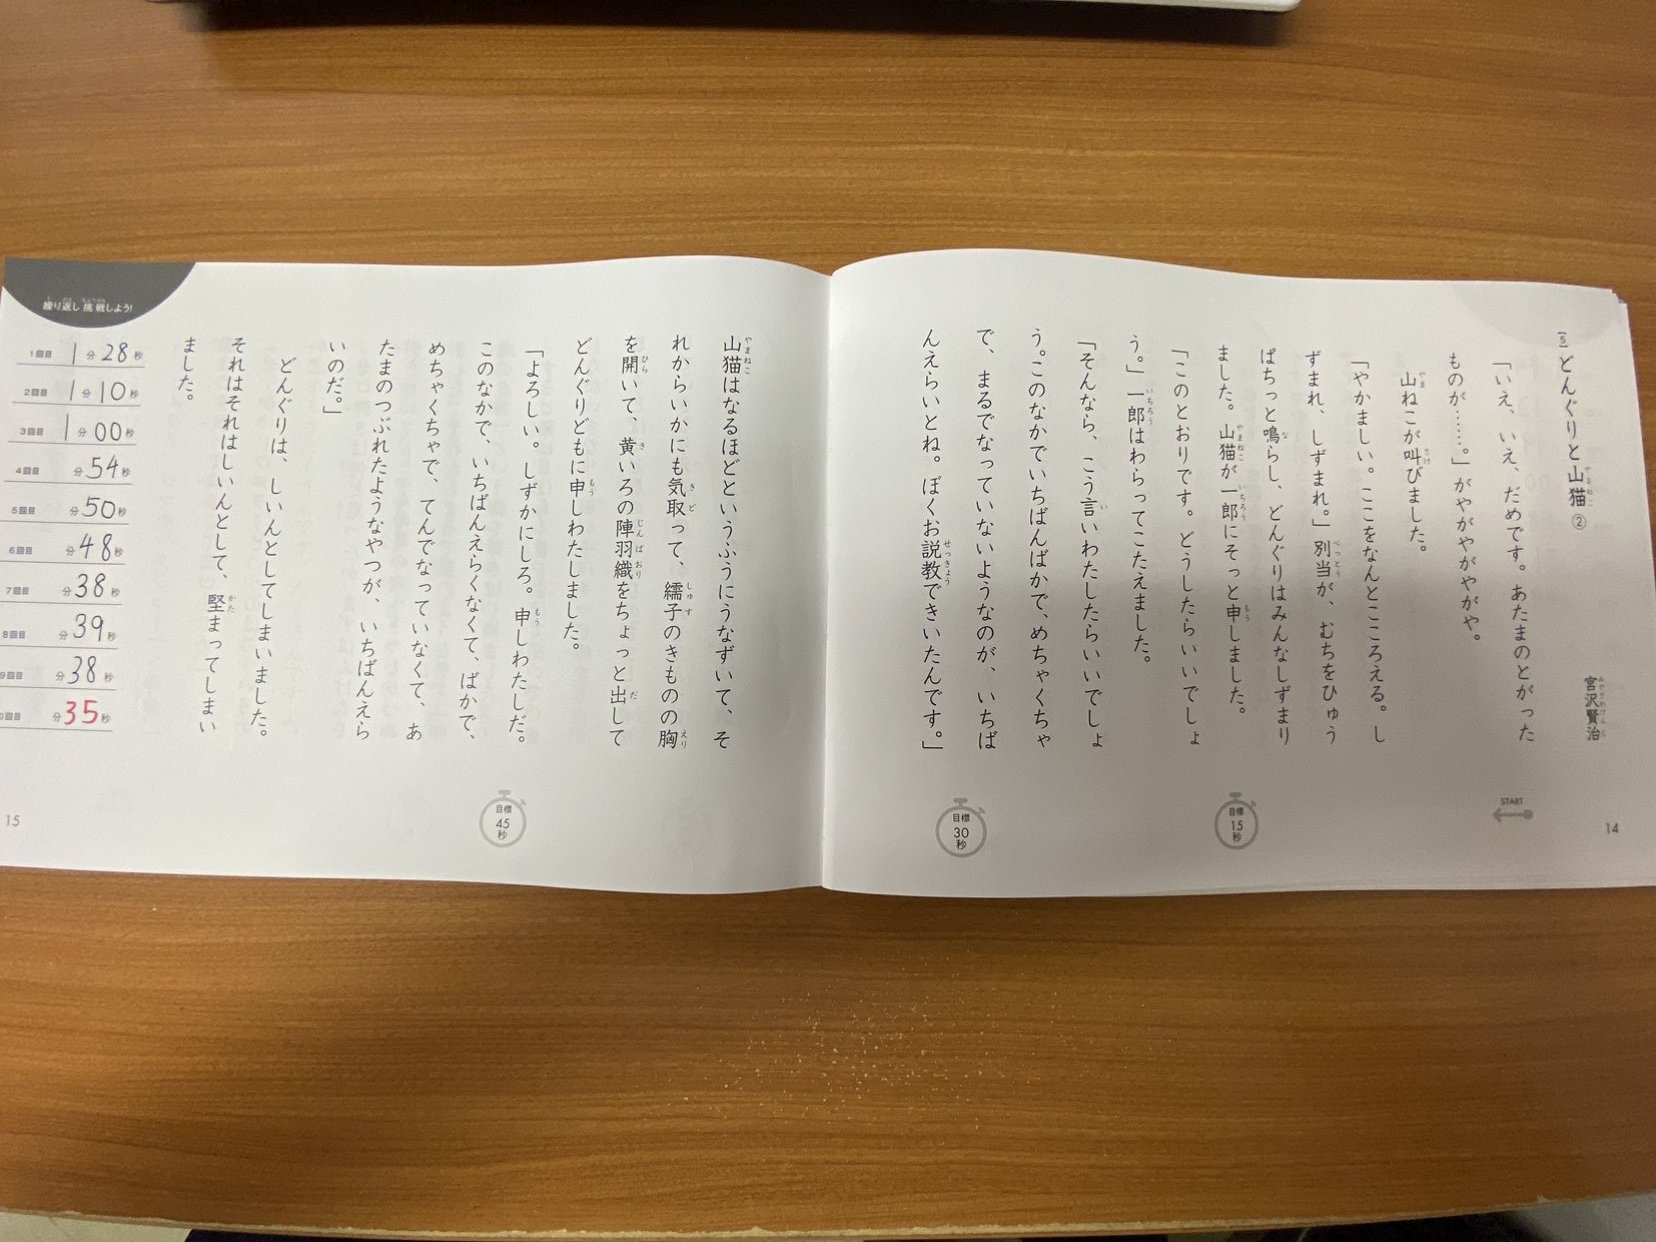 [5] どんぐりと山猫 ②
宮沢賢治
「いえ、いえ、だめです。あたまのとがった
ものが……。」がやがやがやがや。
山ねこが叫びました。
「やかましい。ここをなんとこころえる。し
ずまれ、しずまれ。」別当が、むちをひゅう
ぱちっと鳴らし、どんぐりはみんなしずまり
ました。山猫が一郎にそっと申しました。
「このとおりです。どうしたらいいでしょ
う。」一郎はわらってこたえました。
「そんなら、こう言いわたしたらいいでしょ
う。このなかでいちばんばかで、めちゃくちゃ
で、まるでなっていないようなのが、いちば
んえらいとね。ぼくお説教できいたんです。」
START
目標15秒
目標30秒
14
山猫はなるほどというふうにうなずいて、そ
れからいかにも気取って、繻子のきものの胸
を開いて、黄いろの陣羽織をちょっと出して
どんぐりどもに申しわたしました。
「よろしい。しずかにしろ。申しわたしだ。
このなかで、いちばんえらくなくて、ばかで、
めちゃくちゃで、てんでなっていなくて、あ
たまのつぶれたようなやつが、いちばんえら
いのだ。」
どんぐりは、しいんとしてしまいました。
それはそれはしいんとして、堅まってしまい
ました。
目標45秒
繰り返し挑戦しよう!
1回目 1分28秒
2回目 1分10秒
3回目 1分00秒
4回目 分54秒
5回目 分50秒
6回目 分48秒
7回目 分38秒
8回目 分39秒
9回目 分38秒
0回目 分35秒
15